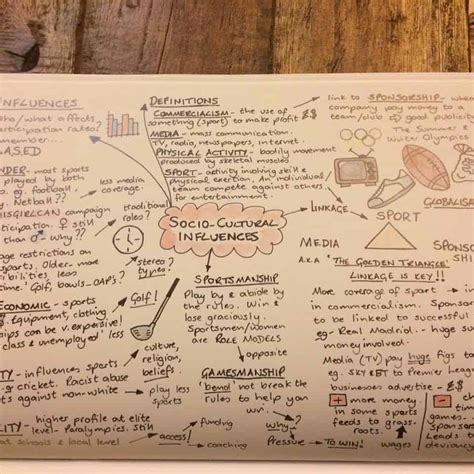 INFLUENCES
what affects
participation rates?
member...
BASED
GENDER - most sports
played by both
eg. football,
Netball??
less media
coverage.
THISGIRLCAN campaign
participation. ♀ still
than ♂ - Why??
traditional
roles?
age restrictions on
sports. Older more
less
time. Golf, bowls - OAPs?
stereo?
types?
ECONOMIC - sports
$. Equipment, clothing
v. expensive!
class & unemployed!
Golf!
culture,
religion,
beliefs.
- influences sports
eg cricket. Racist abuse
against non-white
play less
sports
higher profile at elite
level - Paralympics. Still
at schools & local level
access!
funding
coaching
DEFINITIONS
COMMERCIALISM - the use of
something (sport) to make profit £$
MEDIA - mass communication.
TV, radio, newspapers, internet.
PHYSICAL ACTIVITY - bodily movement
produced by skeletal muscles
SPORT - activity involving skill &
physical exertion. An individual/
team compete against others
for entertainment.
SOCIO-CULTURAL
INFLUENCES
SPORTSMANSHIP
Play by & abide by
the rules. Win &
lose graciously.
Sportsmen/women
are ROLE MODELS
opposite
GAMESMANSHIP
'bend' not break the
rules to help you
win.
why?
Pressure TO WIN!
wages
link to SPONSORSHIP -
company pay money to a
team/club good publicity
The Summer
Winter Olympics
GLOBALISA
LINKAGE
SPORT
MEDIA
SPONSO
A.K.A 'THE GOLDEN TRIANGLE'
LINKAGE IS KEY!!
More coverage of sport →
in commercialism. Sponsors
to be linked to successful
eg. Real Madrid. - huge
money involved.
Media (TV) pay huge figs
eg. SKY & BT to Premier Leag
businesses advertise - £$
+ more money
in some sports
feeds to grass-
roots.
-
times
sport. eg
Lead's
deve